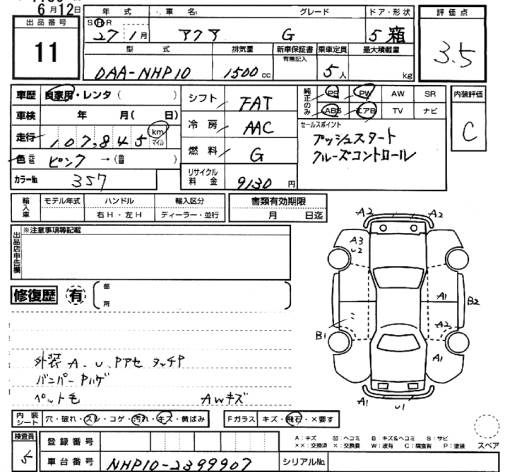 6月12日
出品番号
11
年式 車名 グレード ドア・形状
S H R 27年1月 アクア G 5 箱
型式 排気量 新車保証書 有無記入 乗車定員 最大積載量
DAA-NHP10 1500cc 5人 kg
評価点
3.5
内装評価
C
車歴 自家用・レンタ( )
車検 年 月( 日)
走行 107,845 km マイル
色 元色 ピンク →(替 )
カラーNo 357
シフト FAT
冷房 AAC
燃料 G
リサイクル料金 9130円
純正のみ PS PW AW SR
ABS エアB TV ナビ
セールスポイント
プッシュスタート
クルーズコントロール
輸入車 モデル年式 ハンドル 輸入区分 書類有効期限
右H・左H ディーラー・並行 月 日迄
出品店申告欄 ※注意事項等記載
修復歴 有 ( 箇所 )
外装 A、U、Pアセ タッチP
バンパー Pハゲ
ペット毛 AWキズ
A2 A2
A3
U2
A1 B2
B1 A2
A1
A1 U1
内装シート 穴・破れ・スレ・コゲ・汚れ・キズ・黄ばみ Fガラス キズ・飛石・×要す
検査員 5
登録番号
車台番号 NHP10-2399907 シリアルNo.
A:キズ U:ヘコミ B:キズ&ヘコミ S:サビ
××:交換済 ×:交換要 W:波有 C:腐食有 P:塗装
スペア